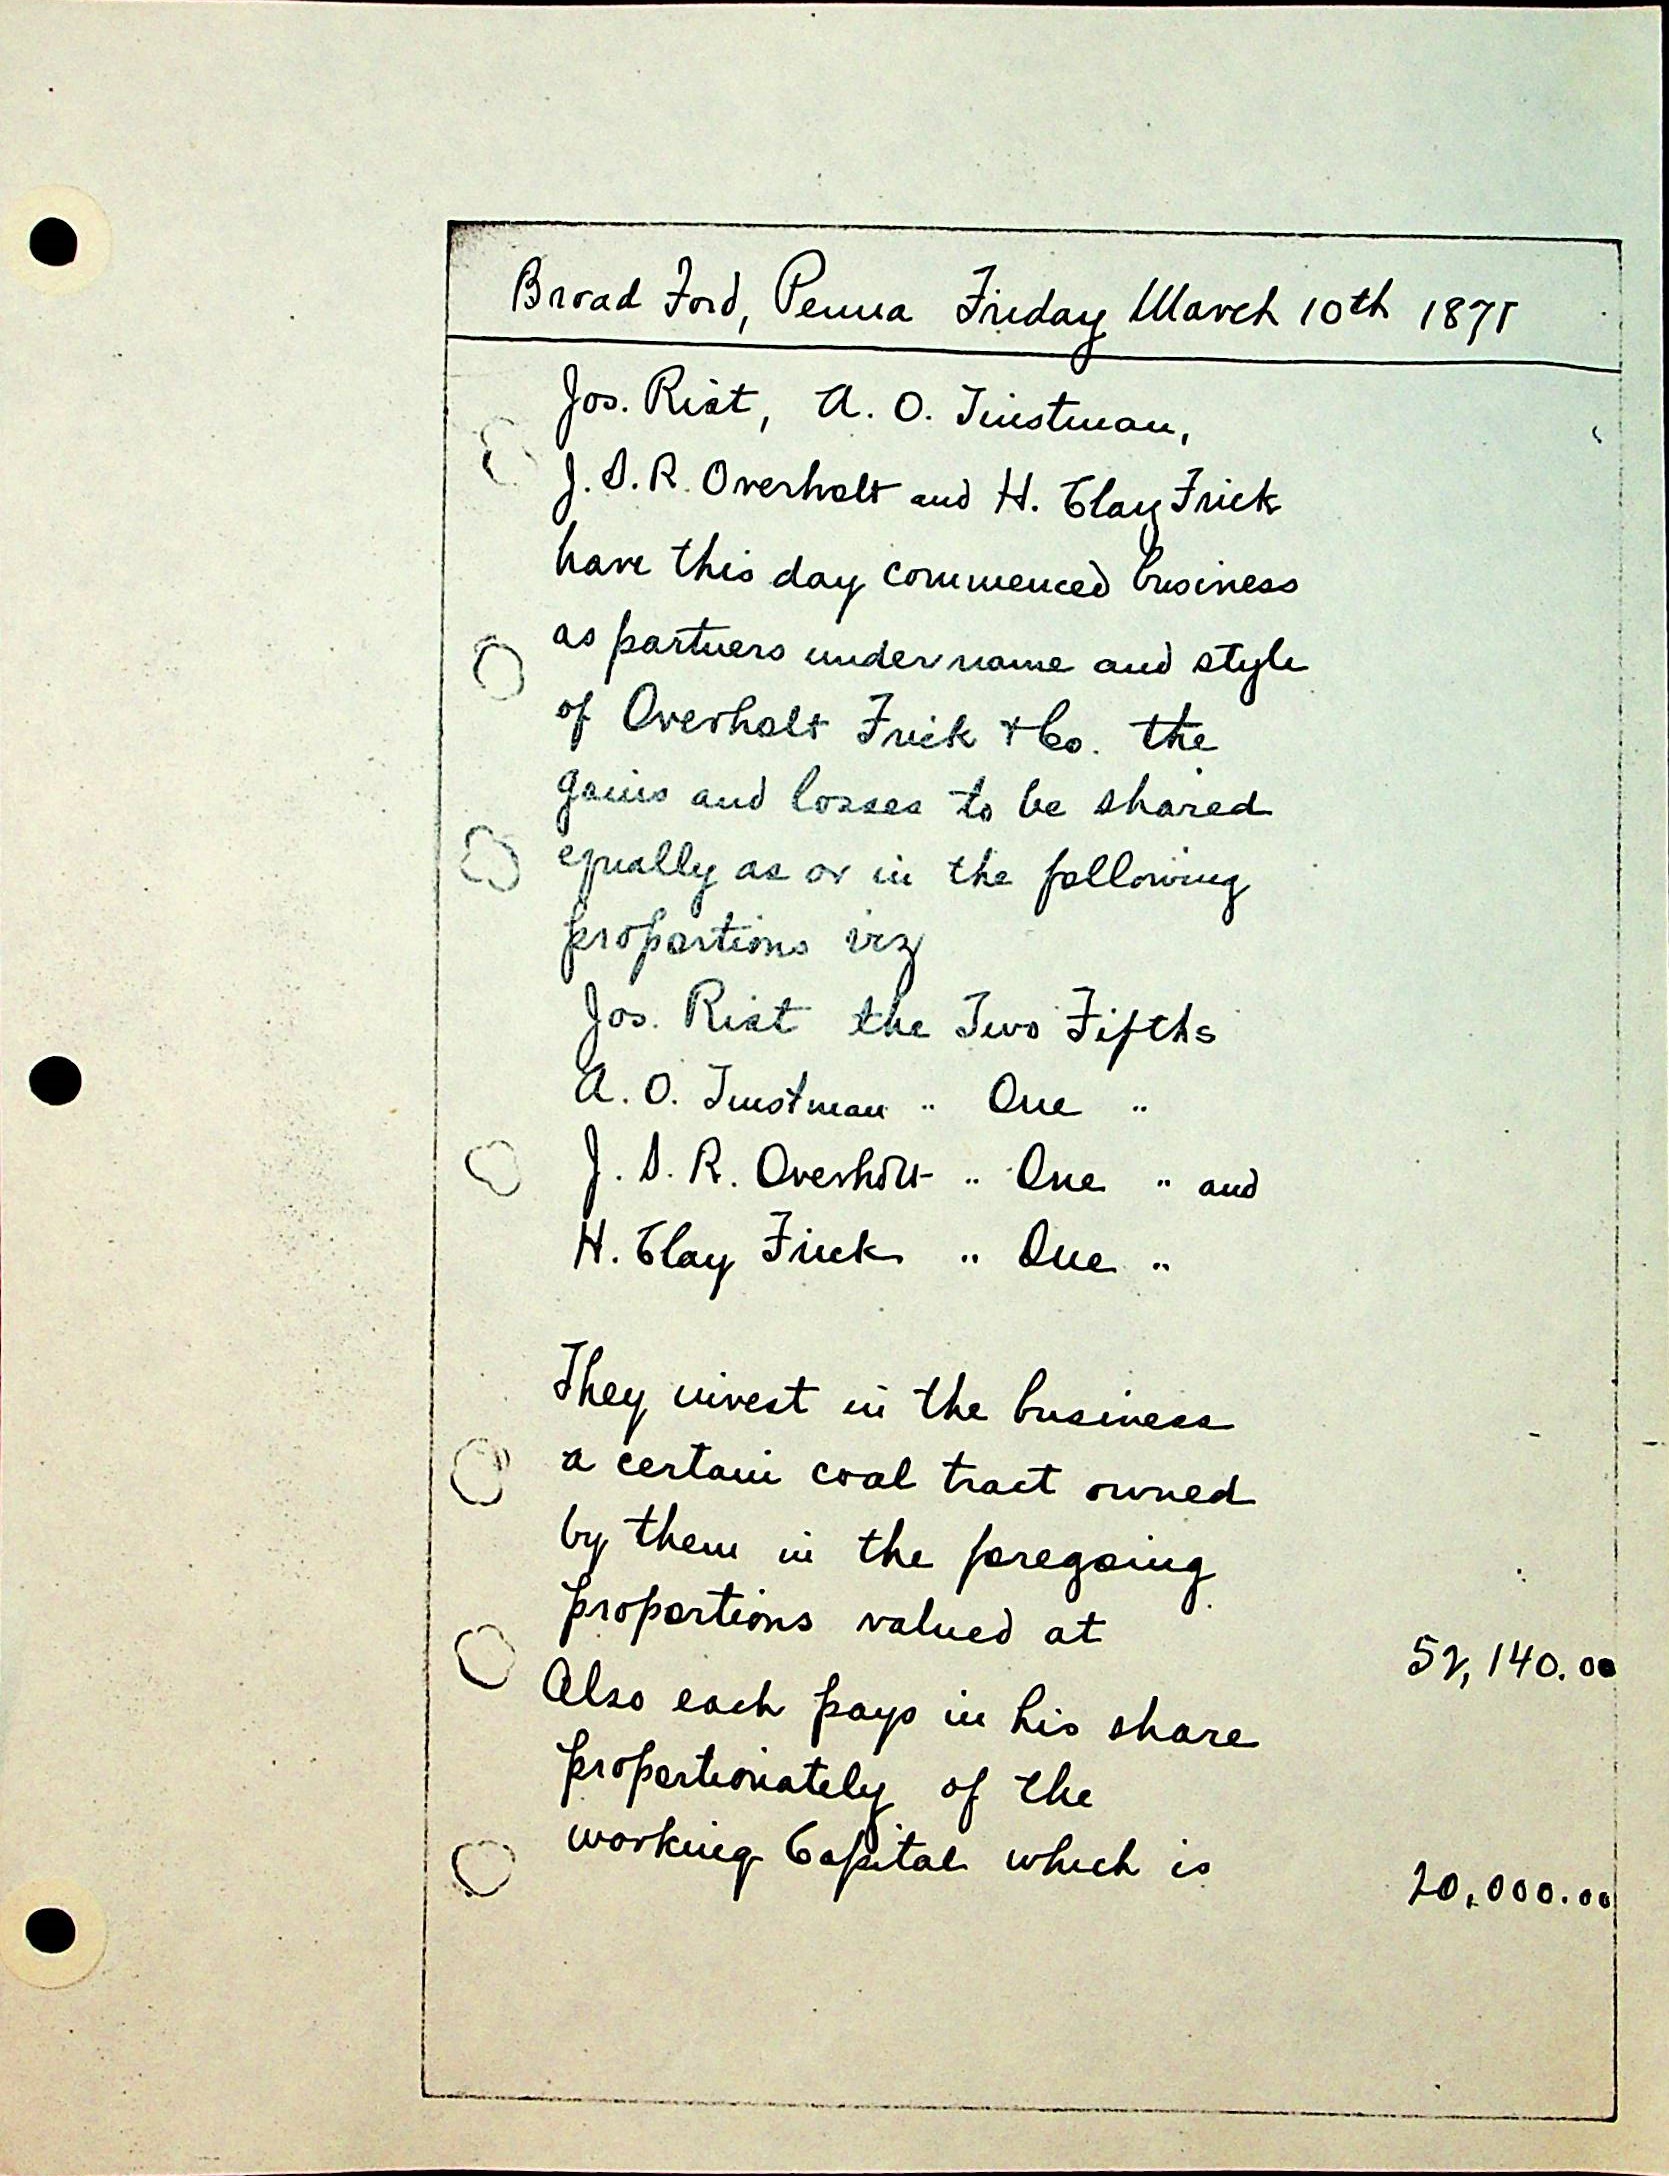 Broad Ford, Penna Friday March 10th 1871
Jos. Rist, A. O. Tinstman,
J. S. R. Overholt and H. Clay Frick
have this day commenced business
as partners under name and style
of Overholt Frick + Co. the
gains and losses to be shared
equally as or in the following
proportions viz
Jos. Rist the Two Fifths
A. O. Tinstman " One "
J. S. R. Overholt " One " and
H. Clay Frick " One "
They invest in the business
a certain coal tract owned
by them in the foregoing
proportions valued at 52,140.00
Also each pays in his share
proportionately of the
working Capital which is 20,000.00